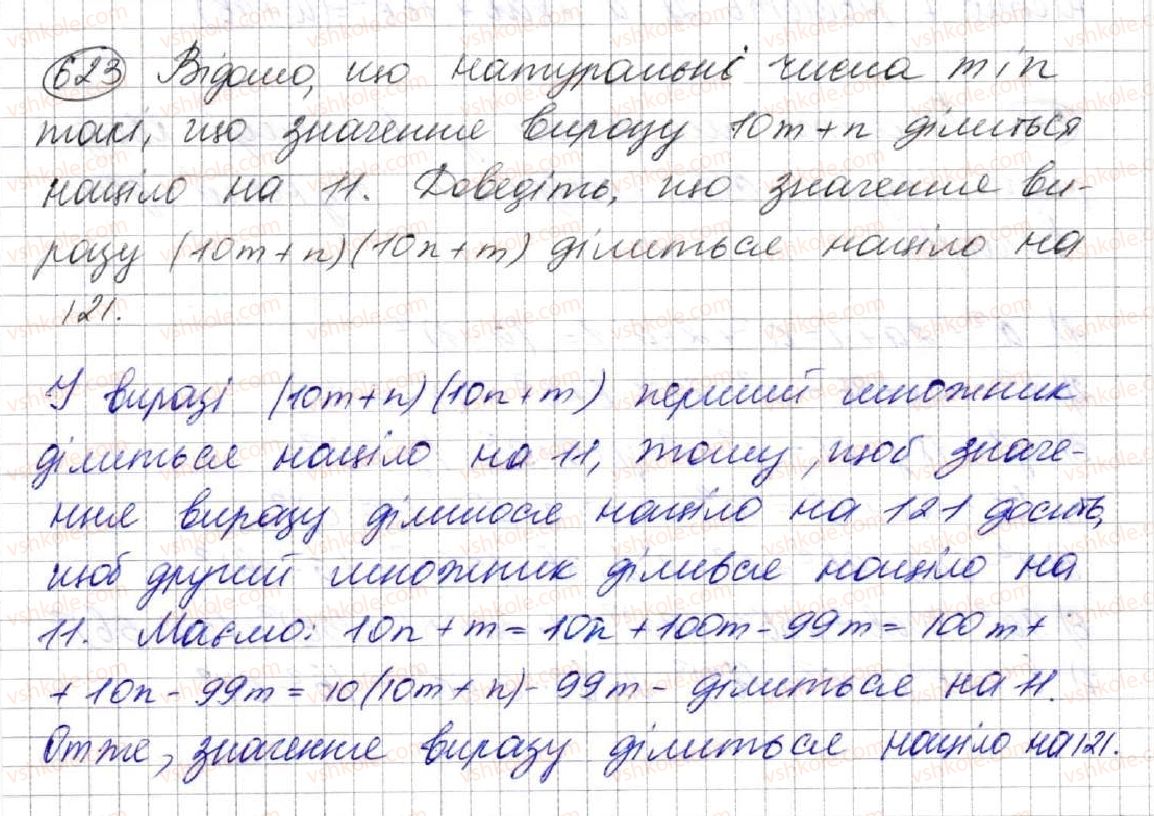 623 Відомо, що натуральні числа m і n
такі, що значення виразу 10m+n ділиться
націло на 11. Доведіть, що значення ви-
разу (10m+n)(10n+m) ділиться націло на
121.
У виразі (10m+n)(10n+m) перший множник
ділиться націло на 11, тому, щоб значе-
ння виразу ділилося націло на 121 досить,
щоб другий множник ділився націло на
11. Маємо: 10n+m=10n+100m-99m=100m+
+10n-99m=10(10m+n)-99m- ділиться на 11.
Отже, значення виразу ділиться націло на 121.